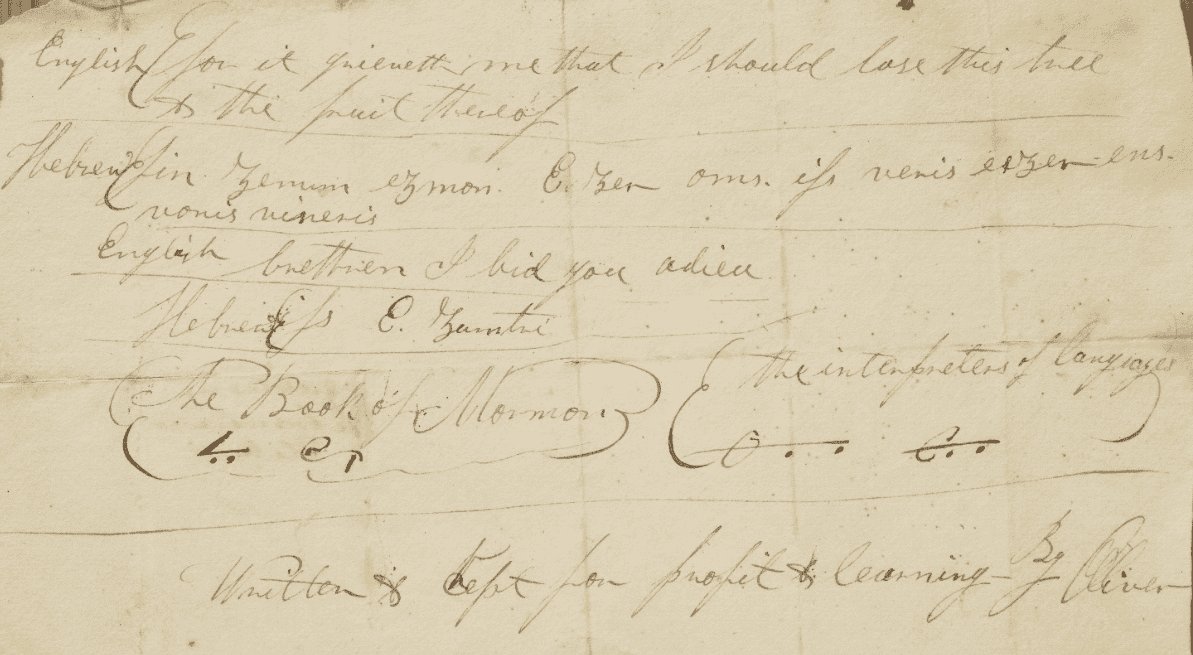 English for it grieveth me that I should lose this tree
& the fruit thereof
Hebrew fin Zemim ezmon E. Zer oms. ifs veris exzer ens.
vonis vineris
English brethren I bid you adieu
Hebrew ifs E. Zamtri
The Book of Mormon
the interpreters of languages
Written & kept for profit & learning By Oliver